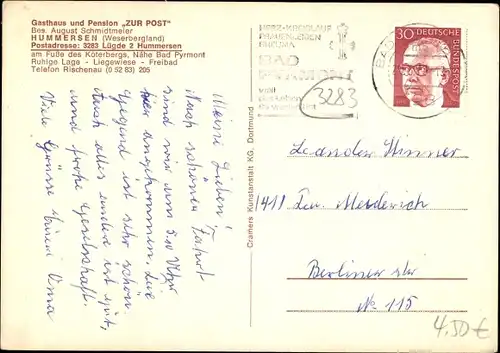 Gasthaus und Pension „ZUR POST"
Bes. August Schmidtmeier
HUMMERSEN (Weserbergland)
Postadresse: 3283 Lügde 2 Hummersen
am Fuße des Köterbergs, Nähe Bad Pyrmont
Ruhige Lage - Liegewiese - Freibad
Telefon Rischenau (0 52 83) 205
Meine Lieben!
Nach schöner Fahrt
sind wir um 5.10 Uhr
hier angekommen. Die
Gegend ist sehr schön
Auch alles andere ist gut,
und frohe Gesellschaft.
Viele Grüsse Oma
Cramers Kunstanstalt KG, Dortmund
HERZ-KREISLAUF
FRAUENLEIDEN
RHEUMA
BAD
PYRMONT
3283
BAD
30 DEUTSCHE
BUNDESPOST
Leander
41 Meiderich
Berliner str
No 115
4.50 €